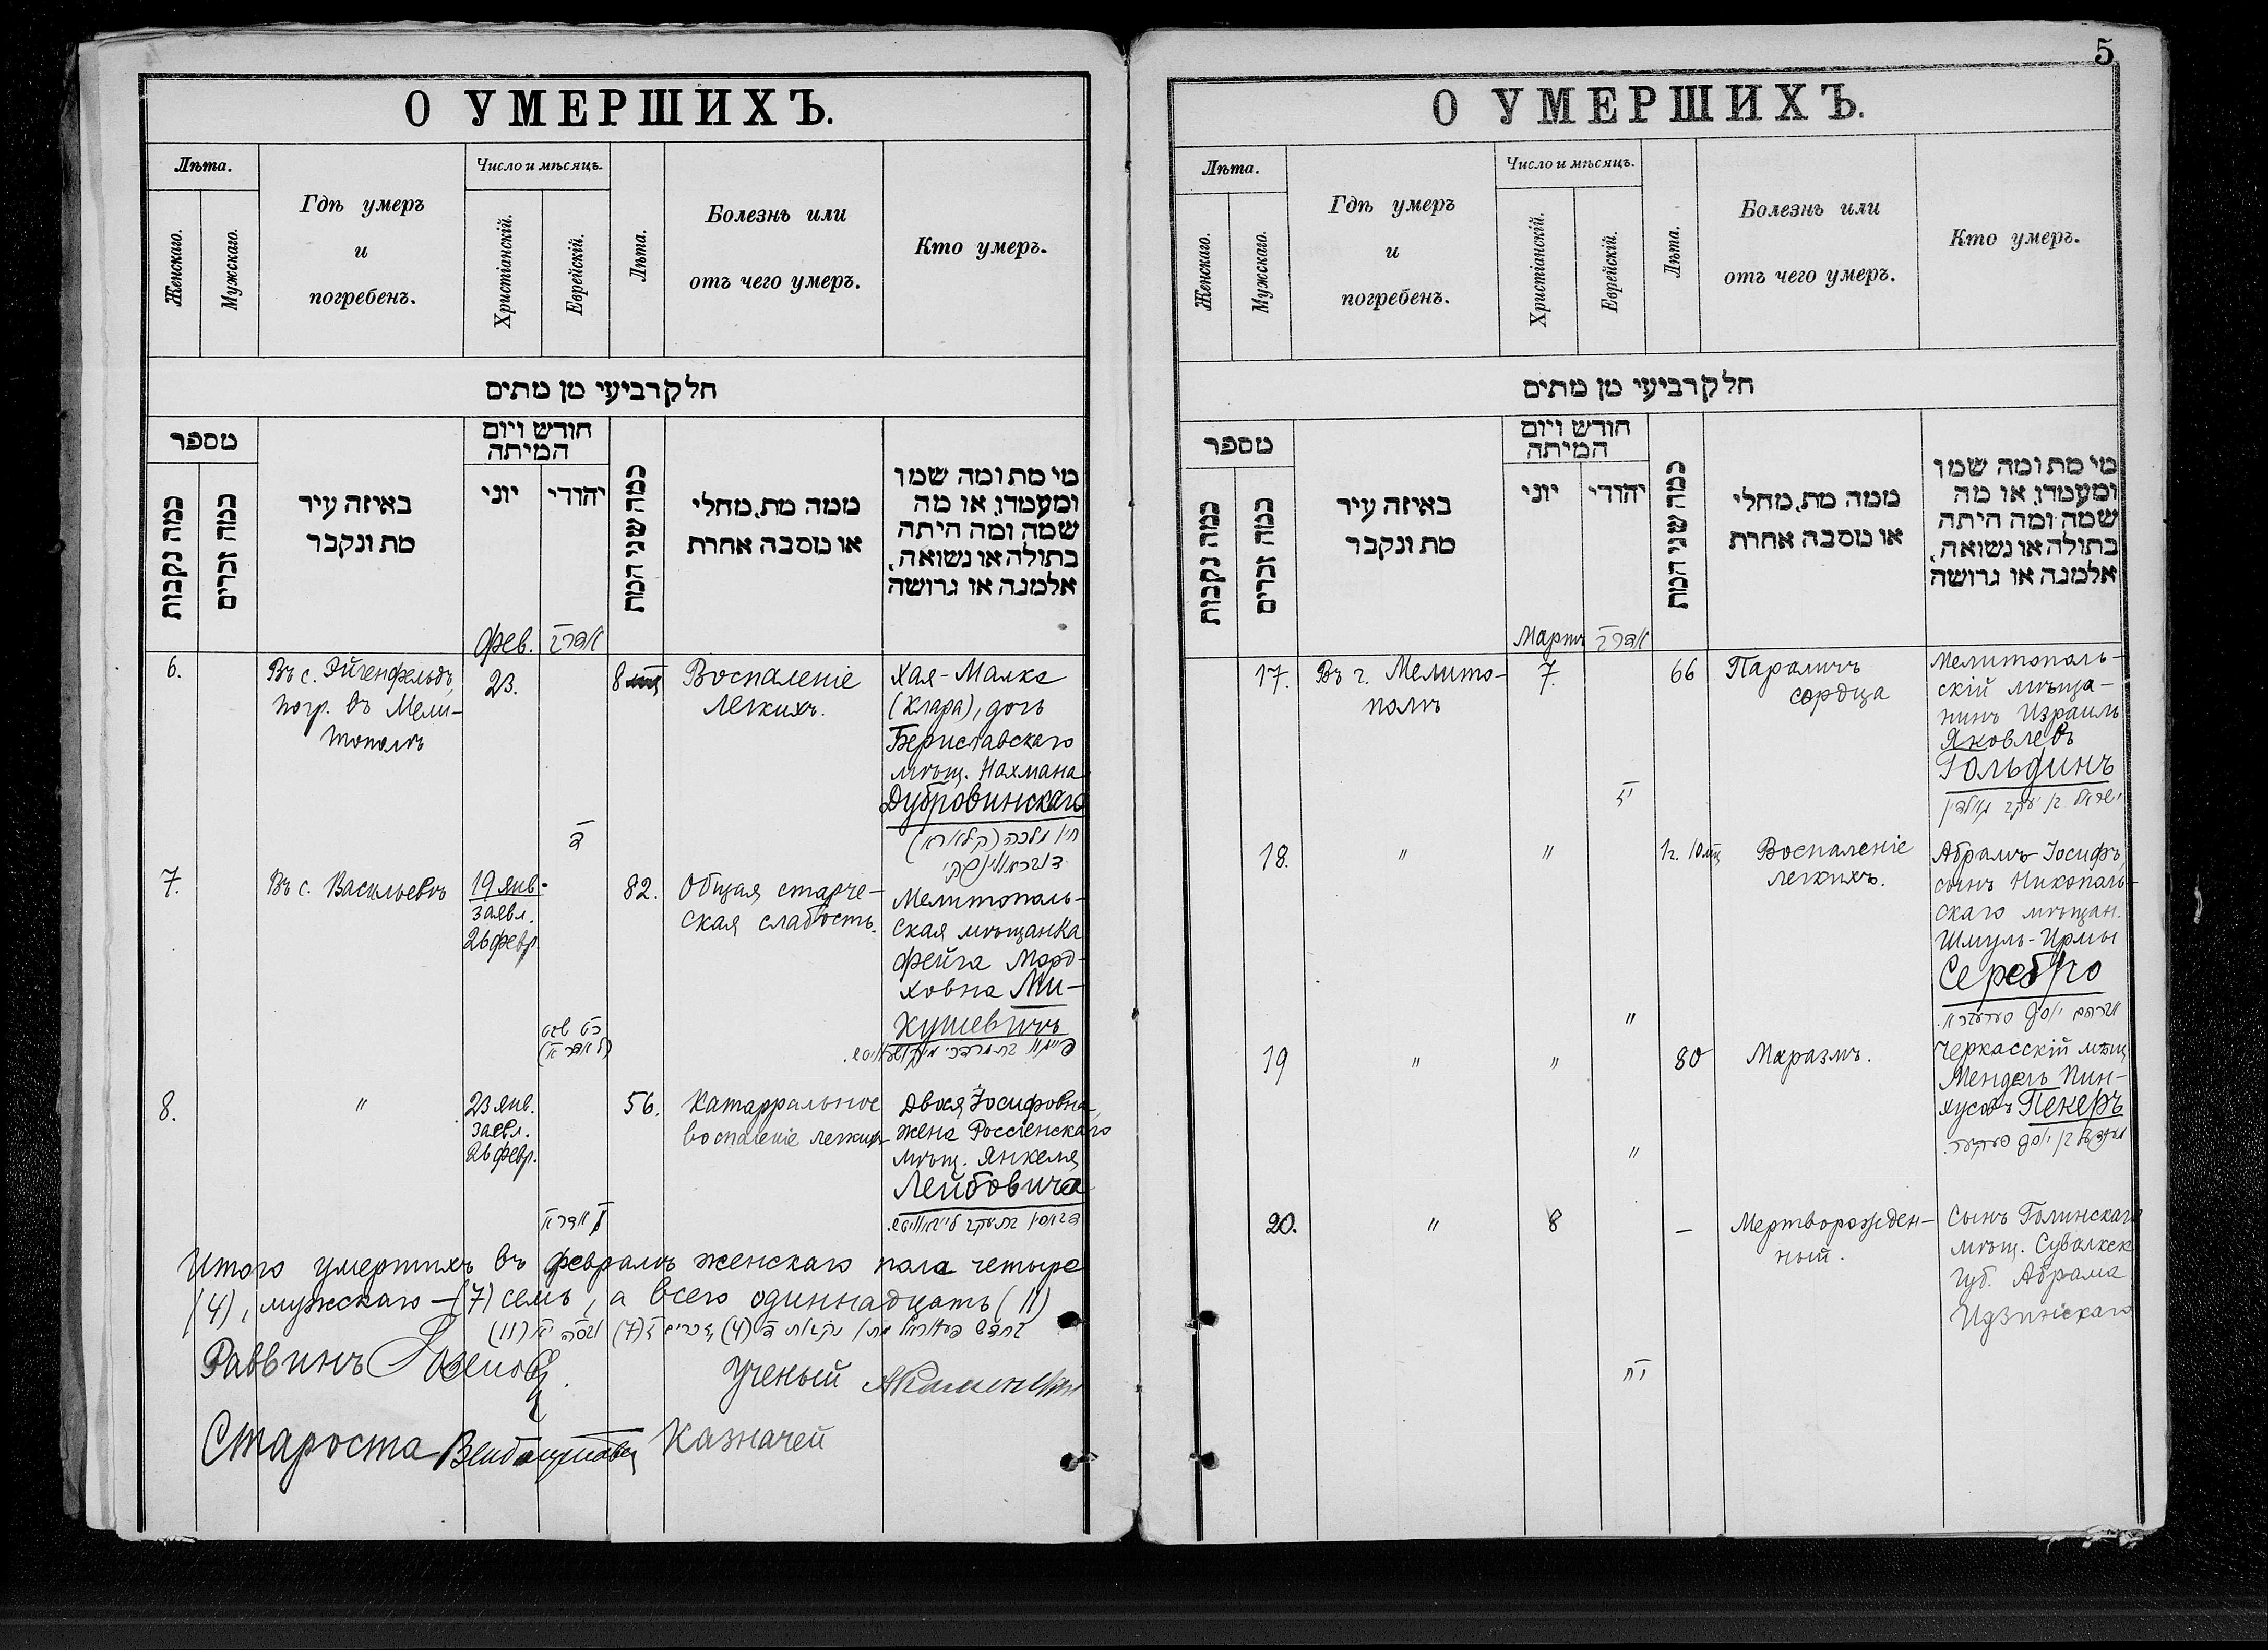 О УМЕРШИХЪ.
Лѣта.
Женскаго.
Мужскаго.
Гдѣ умеръ
и
погребенъ.
Число и мѣсяцъ.
Христіанскій.
Еврейскій.
Лѣта.
Болезнь или
отъ чего умеръ.
Кто умеръ.
חלק רביעי מן מתים
מספר
כמה נקבות
כמה זכרים
באיזה עיר
מת ונקבר
חודש ויום
המיתה
יוני
יהודי
כמה שני המת
ממה מת, מחלי
או מסבה אחרת
מי מת ומה שמו
ומעמדו, או מה
שמה ומה היתה
בתולה או נשואה,
אלמנה או גרושה
Фев.
6.
Въ с. Эйгенфельдъ,
погр. въ Мели-
тополѣ
23.
8
Воспаленіе
легкихъ.
Хая-Малка
(Клара), дочь
Бериславскаго
мѣщ. Нахмана
Дубровинскаго
7.
Въ с. Васильевкѣ
19 янв.
заявл.
26 февр.
82.
Общая старче-
ская слабость.
Мелитополь-
ская мѣщанка
Фейга Морд-
ховна Ми-
кушевичъ
8.
"
23 янв.
заявл.
26 февр.
56.
Катарральное
воспаленіе легкихъ
Двося Іосифовна,
жена Россіенскаго
мѣщ. Янкеля
Лейбовича
Итого умершихъ въ февралѣ женскаго пола четыре
(4), мужскаго - (7) семь, а всего одиннадцать (11)
Раввинъ
Ученый
Староста
Казначей
5
О УМЕРШИХЪ.
Лѣта.
Женскаго.
Мужскаго.
Гдѣ умеръ
и
погребенъ.
Число и мѣсяцъ.
Христіанскій.
Еврейскій.
Лѣта.
Болезнь или
отъ чего умеръ.
Кто умеръ.
חלק רביעי מן מתים
מספר
כמה נקבות
כמה זכרים
באיזה עיר
מת ונקבר
חודש ויום
המיתה
יוני
יהודי
כמה שני המת
ממה מת, מחלי
או מסבה אחרת
מי מת ומה שמו
ומעמדו, או מה
שמה ומה היתה
בתולה או נשואה,
אלמנה או גרושה
Мартъ
17.
Въ г. Мелито-
полѣ
7.
66
Параличъ
сердца
Мелитополь-
скій мѣща-
нинъ Израиль
Яковлевъ
Гольдинъ
18.
"
"
1 г. 10 мѣс
Воспаленіе
легкихъ.
Абрамъ-Іосифъ,
сынъ Никополь-
скаго мѣщан.
Шмуль-Ирмы
Серебро
"
19
"
"
80
Маразмъ.
Черкасскій мѣщ
Мендель Пин-
хусовъ Пекеръ
"
20.
"
8
-
Мертворожден-
ный.
Сынъ Голинскаго
мѣщ. Сувалкск
губ. Абрама
Идзинскаго